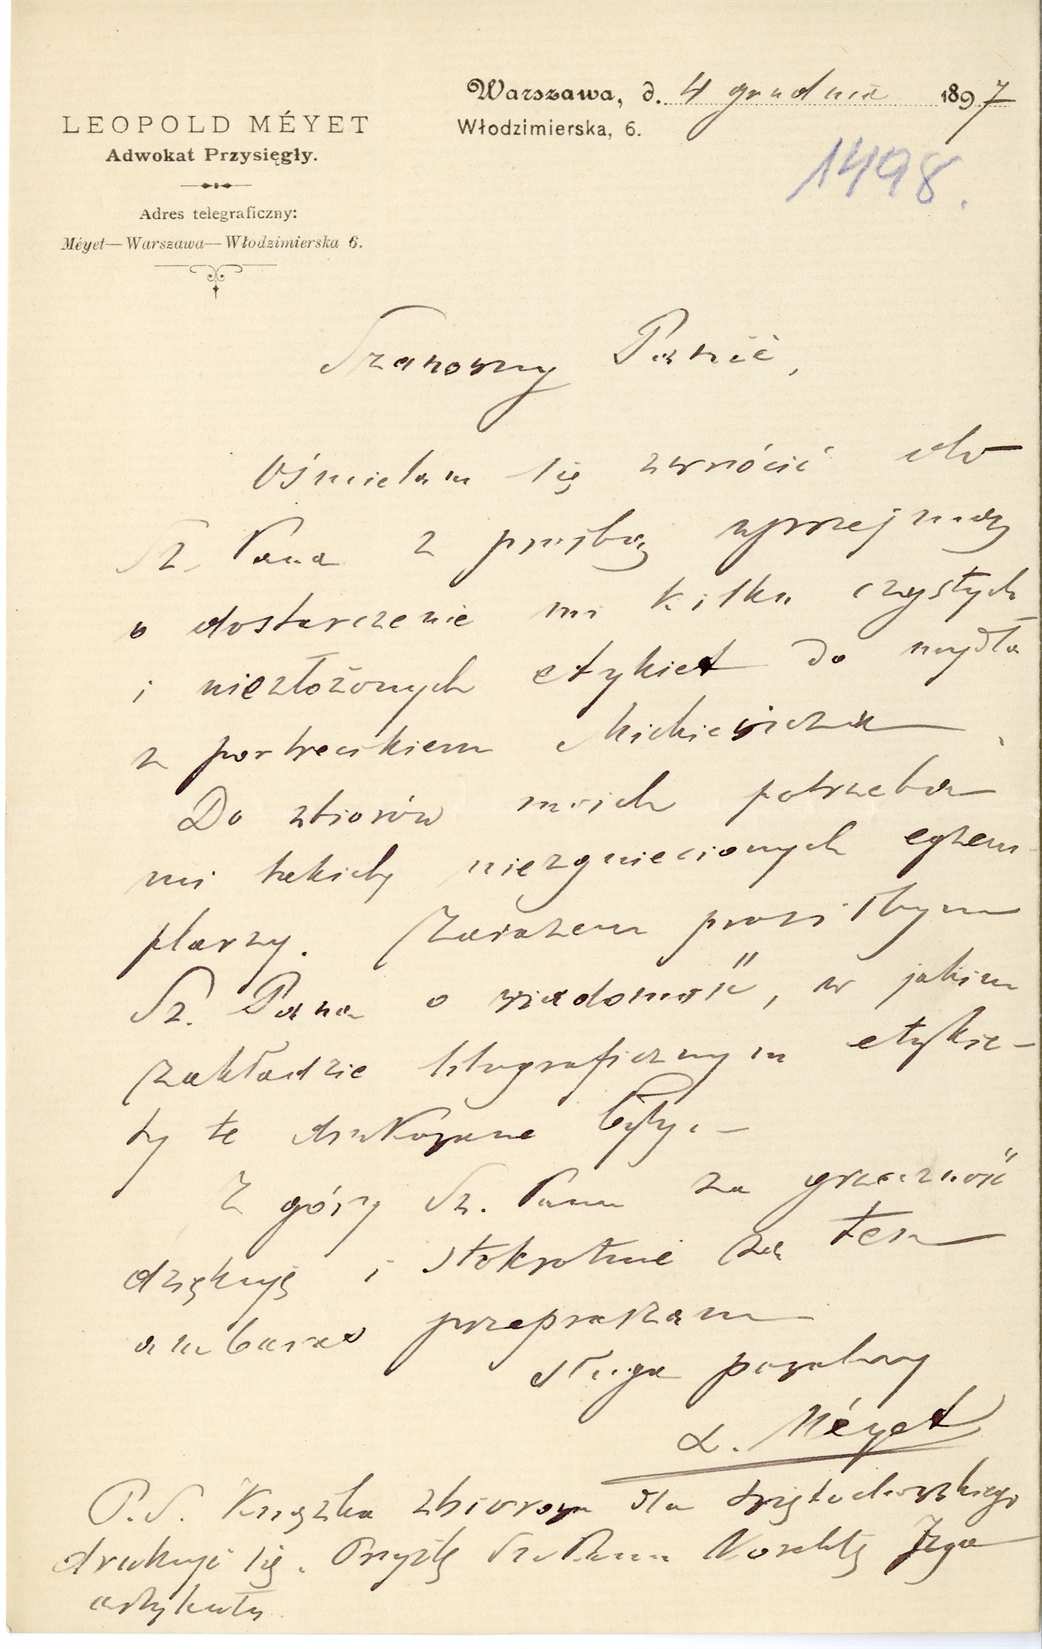 Warszawa, d. 4 grudnia 1897
Włodzimierska, 6.
LEOPOLD MÉYET
Adwokat Przysięgły.
Adres telegraficzny:
Méyet—Warszawa—Włodzimierska 6.
1498.
Szanowny Panie,
Ośmielam się zwrócić do
Sz. Pana z prośbą uprzejmą
o dostarczenie mi kilku czystych
i niezłożonych etykiet do mydła
z portrecikiem Mickiewicza.
Do zbiorów moich potrzeba
mi takich niezgniecionych egzem-
plarzy. Zarazem prosiłbym
Sz. Pana o wiadomość, w jakim
zakładzie litograficznym etykie-
ty te drukowane były.—
Z góry Sz. Panu za grzeczność
dziękuję i stokrotnie za ten
ambaras przepraszam
sługa powolny
L. Méyet
P.S. Książka zbiorowa dla Świętochowskiego
drukuje się. Przyślę Sz. Panu korektę Jego
artykułu.